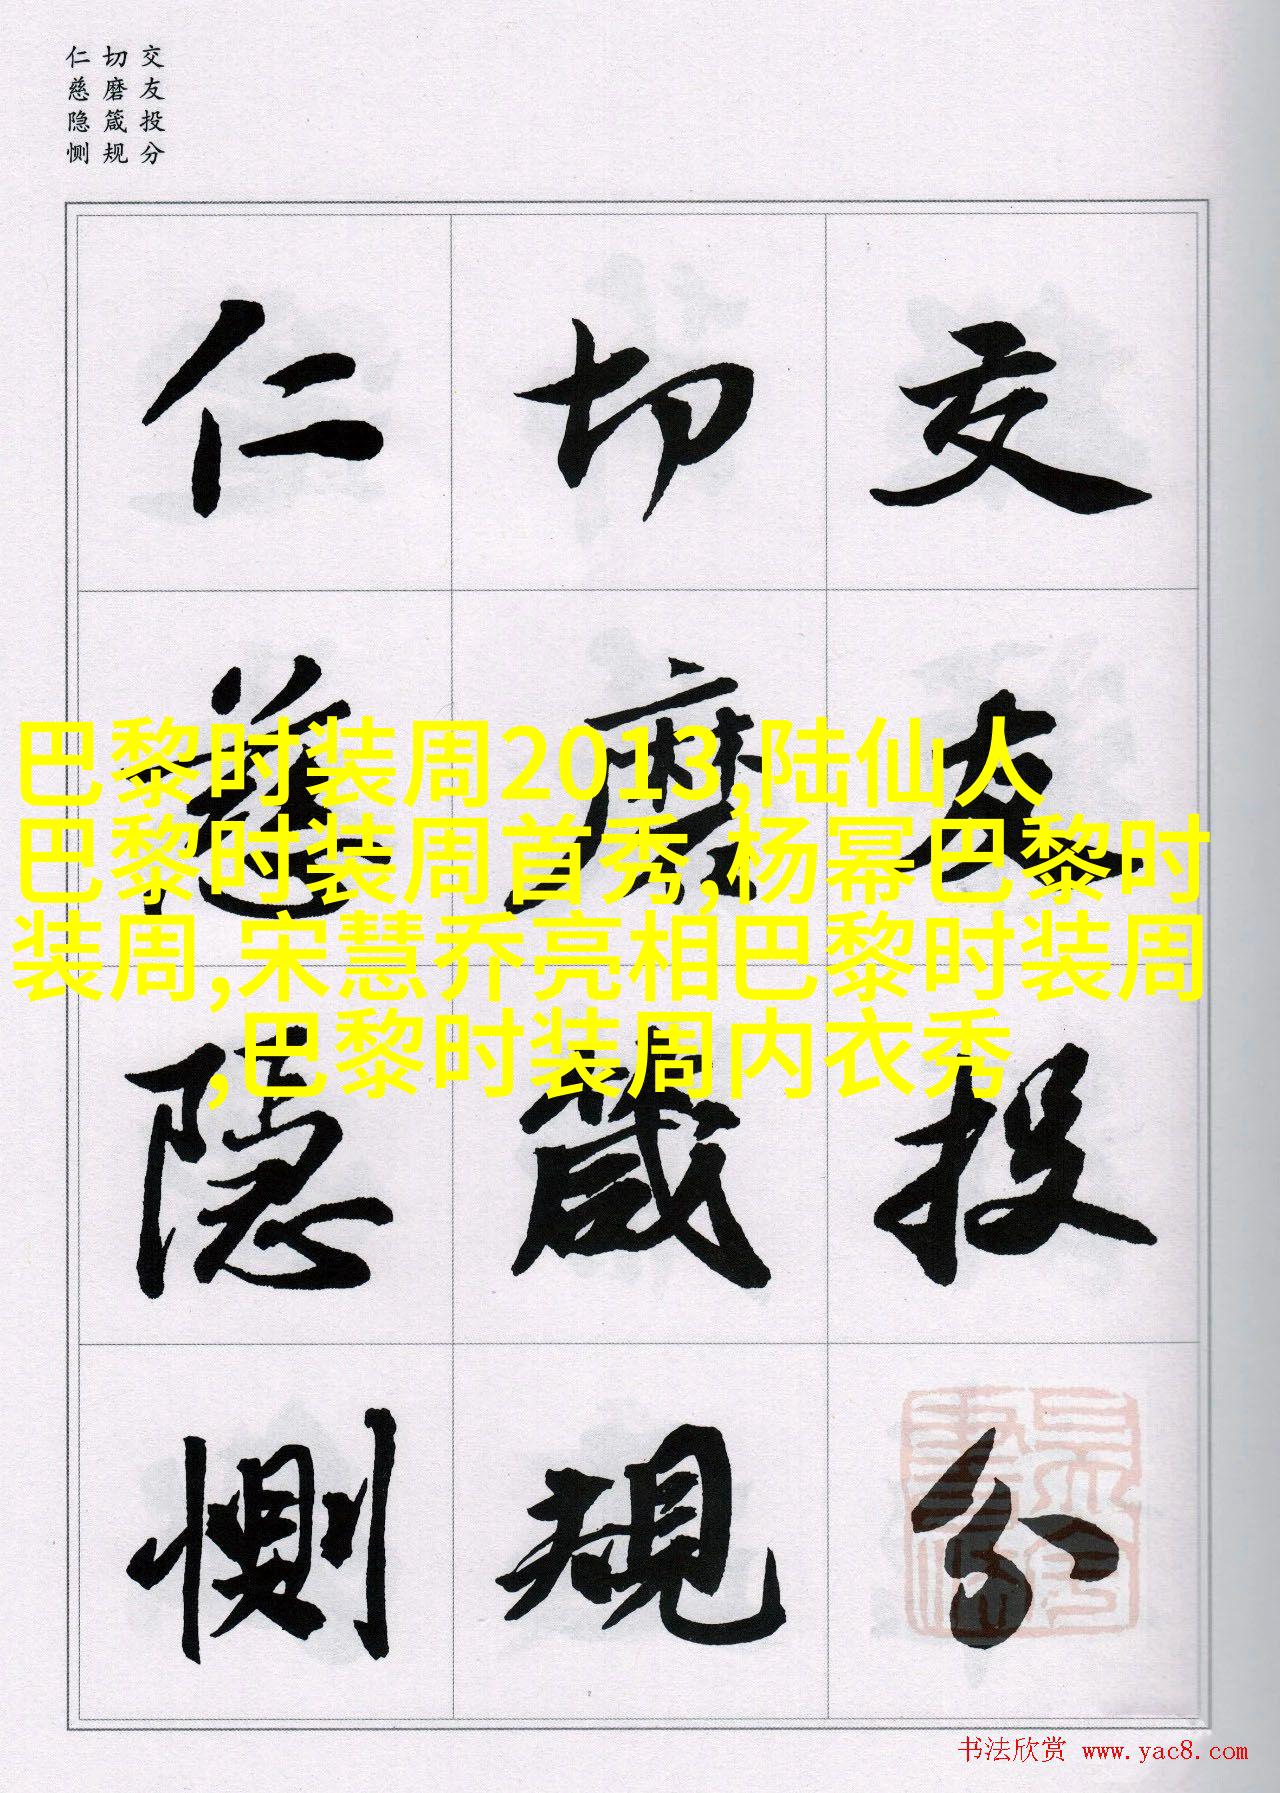 交友投分
切磨箴规
仁慈隐恻
交友投分
切磨箴規
仁慈隐恻
巴黎时装周2013,陆仙人
巴黎时装周首秀,杨幂巴黎时
装周,宋慧乔亮相巴黎时装周
,巴黎时装周内衣秀
书法欣赏 www.yac8.com